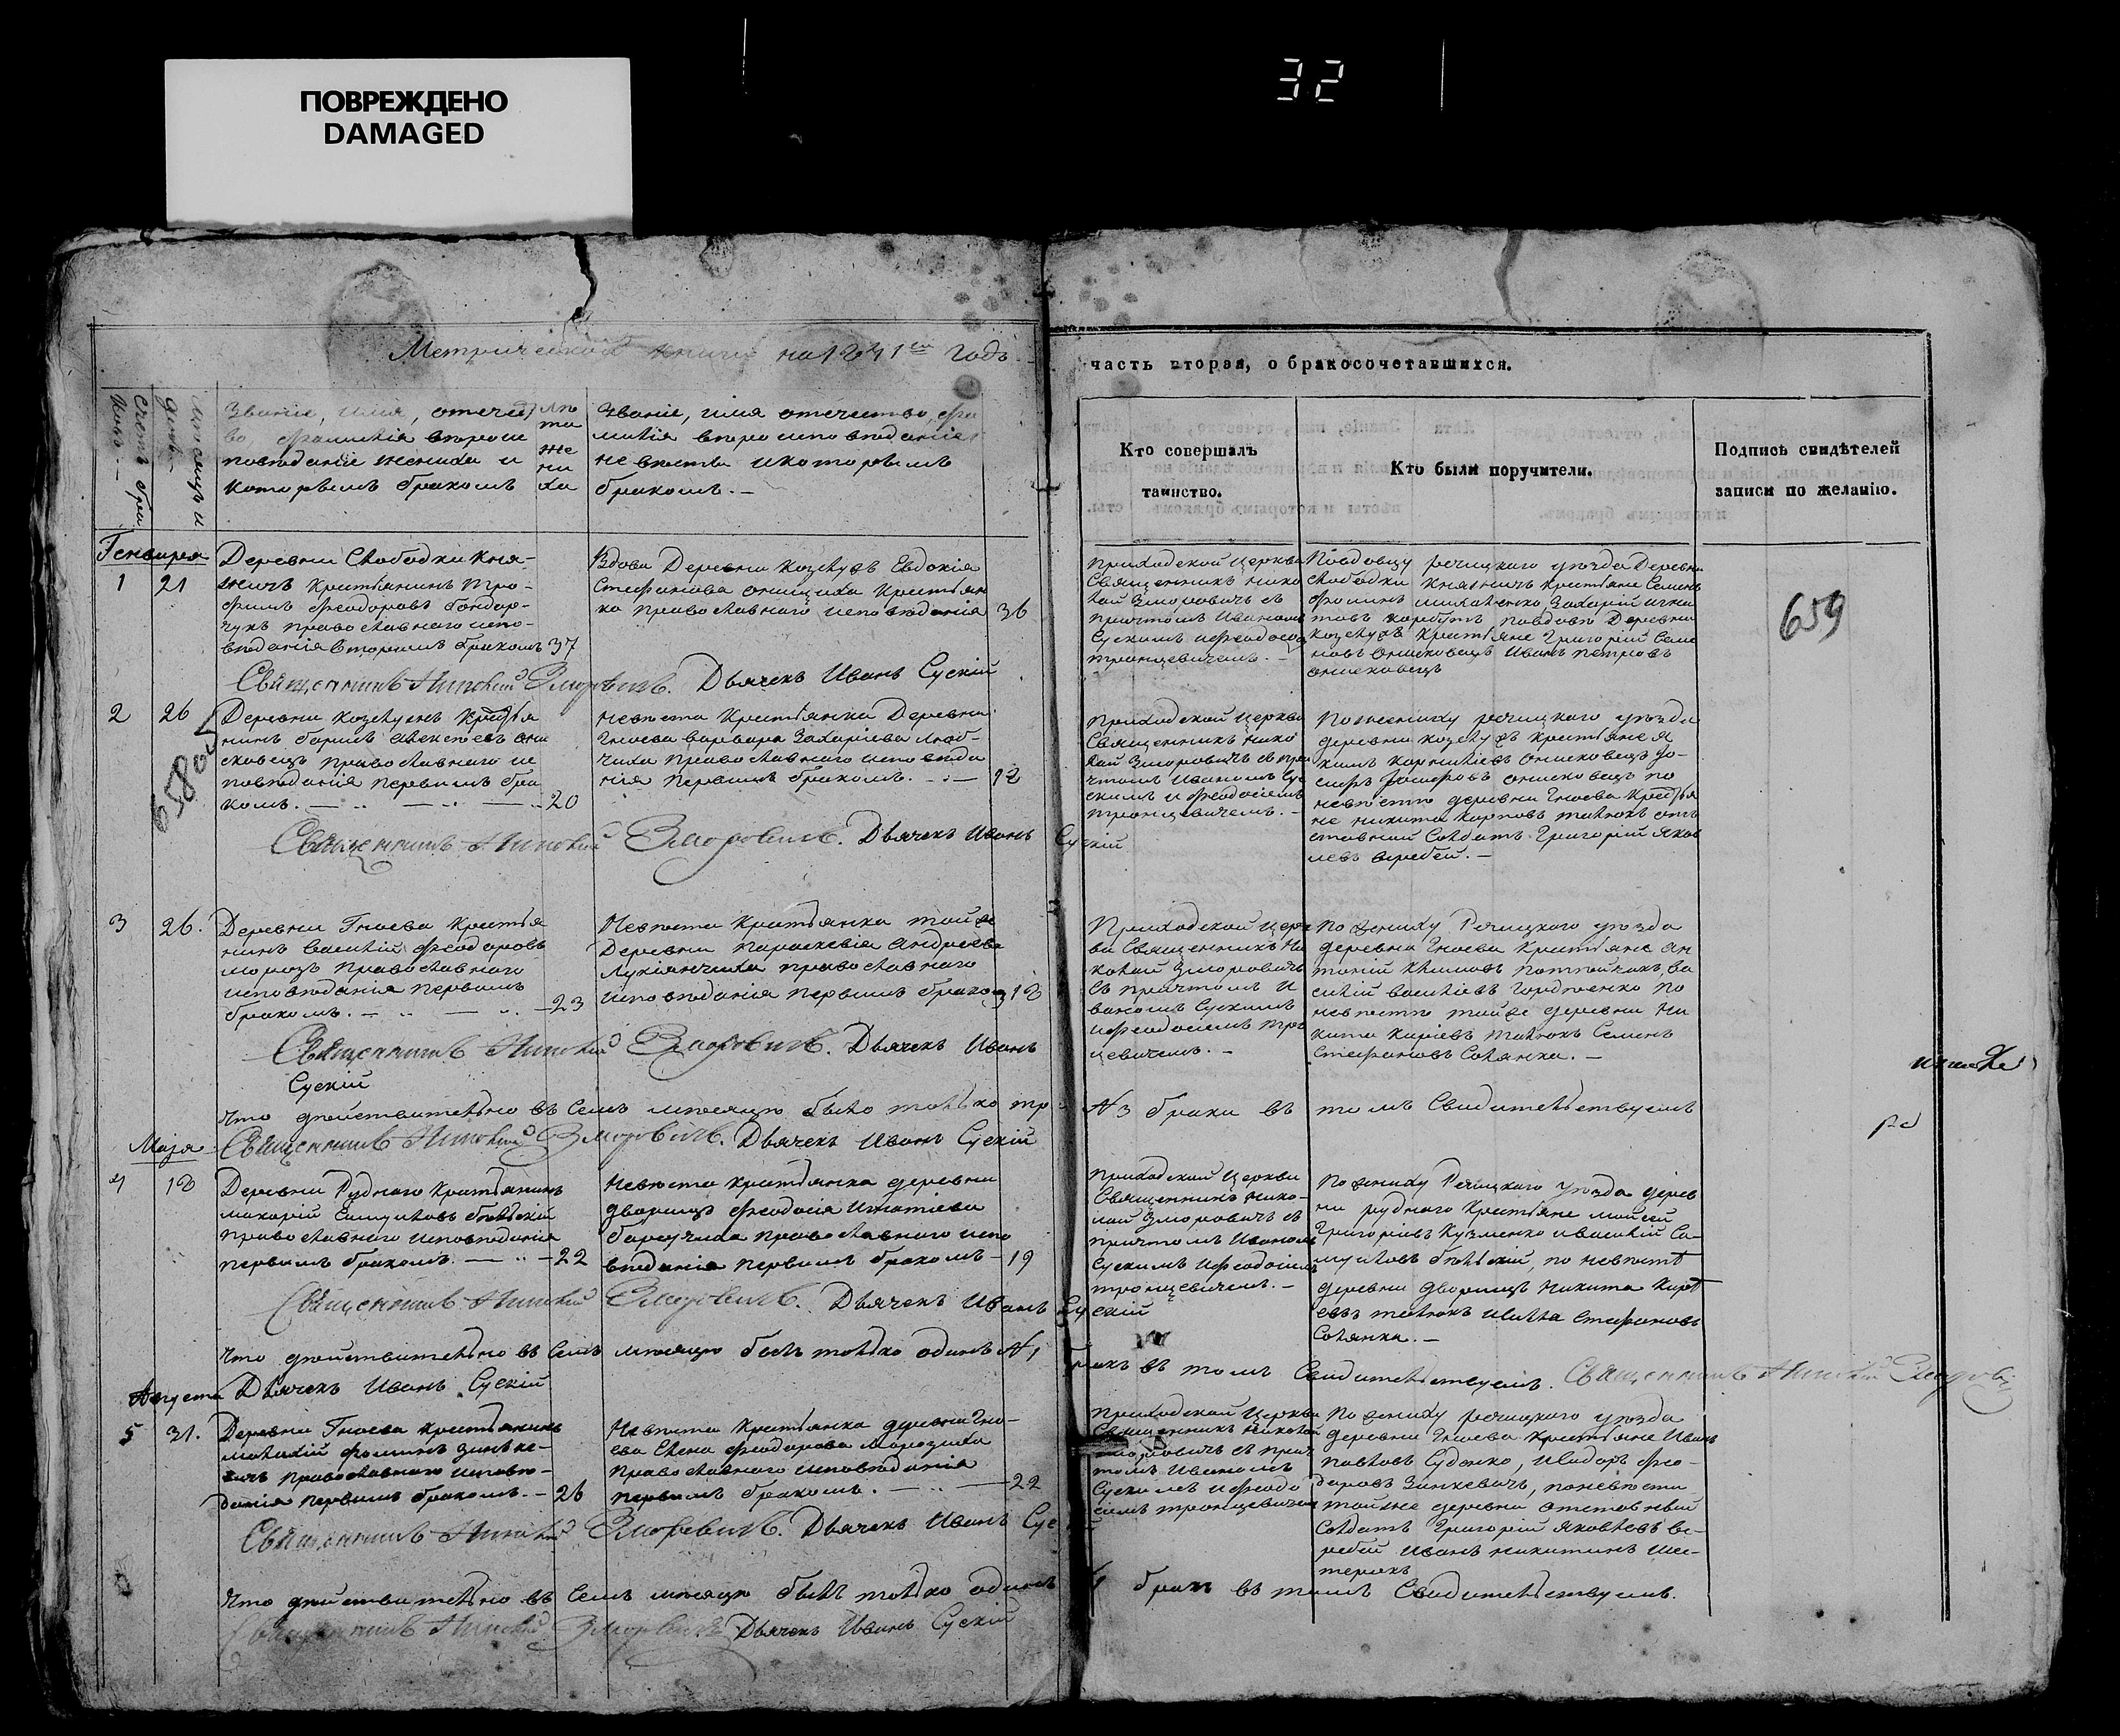 ПОВРЕЖДЕНО
DAMAGED
32
Метрической книги на 1841й годъ
часть вторая, о бракосочетавшихся.
Званіе, имя, отечест
во, фамилія
повѣданіе жениха и
которымъ бракомъ
лѣ
та
же
ни
ха
Званіе, имя отечество, фа
милія
невѣсты и которымъ
бракомъ. —
Кто совершалъ
таинство.
Кто были поручители.
Подпись свидѣтелей
записи по желанію.
Генваря
1
21
Деревни Слободки Кня-
жичъ Крестьянинъ Тро-
фимъ Феодоровъ Бондар-
чукъ православнаго испо-
вѣданія вторымъ бракомъ 37
Вдова Деревни Козелужъ Евдокія
Стефанова Крестьян
ка православнаго исповѣданія 36
Приходской церкви
Священникъ Нико
лай Зморовичъ съ
причтомъ Иваномъ
Сускимъ и Феодосі
Тронцевичемъ. —
По вдовцу речицкого уѣзда Деревни
Слободки Княжичъ Крестьяне Семенъ
Фоминъ Захарій Игна
товъ по вдовѣ Деревни
Козелужъ Крестьяне Григорій Семе
новъ Онисковецъ Иванъ Петровъ
Онисковецъ
659
Священникъ Николай Зморовичъ. Дьячекъ Иванъ Сускій
2
26
658 об
Деревни Козелужъ Крестья
нинъ Борисъ Алексеевъ Они
сковецъ православнаго ис
повѣданія первымъ бра
комъ. — 20
Невѣста Крестьянка Деревни
Гноева Варвара Захаріева
православнаго исповѣда
нія первымъ бракомъ. — 18
Приходской Церкви
Священникъ Нико
лай Зморовичъ съ при
чтомъ Иваномъ Су
скимъ и Феодосіемъ
Тронцевичемъ. —
По жениху речицкаго уѣзда
деревни Козелужъ Крестьяне Я
кимъ Корниліевъ Онисковецъ Іо-
сифъ Іосифовъ Онисковецъ по
невѣстѣ деревни Гноева Крестья
не Никита Карповъ отъ
ставный Солдатъ Григорій Яков
левъ Веребей. —
Священникъ Николай Зморовичъ. Дьячекъ Иванъ Сускій
3
26.
Деревни Гноева Крестья
нинъ Василій Феодоровъ
Морозъ Православнаго
исповѣданія первымъ
бракомъ. — 23
Невѣста Крестьянка той же
Деревни Параскевія Андреева
Лукіянчиха православнаго
исповѣданія первымъ бракомъ 18
Приходской Церк
ви Священникъ Ни
колай Зморовичъ
съ причтомъ И
ваномъ Сускимъ
и Феодосіемъ Трон
цевичемъ. —
По жениху Речицкаго уѣзда
деревни Гноева Крестьяне Ан
тоній Климовъ Ва
силій Василіевъ Гордѣенко по
невѣстѣ той же деревни Ни
кита Семенъ
Стефановъ Солянка. —
Священникъ Николай Зморовичъ. Дьячекъ Иванъ
Сускій
Что дѣйствительно въ семъ мѣсяцѣ было только три № 3 брака въ томъ Свидѣтельствуемъ
Священникъ Николай Зморовичъ. Дьячекъ Иванъ Сускій
Маія
4
18
Деревни Рудного Крестьянинъ
Макарій Самуиловъ Бѣльскій
Православнаго Исповѣданія
первымъ бракомъ. — 22
Невѣста Крестьянка деревни
Дворищъ Феодосія Игнатіева
православнаго испо
вѣданія первымъ бракомъ — 19
Приходской Церкви
Священникъ Нико-
лай Зморовичъ съ
причтомъ Иваномъ
Сускимъ и Феодосіемъ
Тронцевичемъ. —
По жениху Речицкаго уѣзда дерев
ни Рудного Крестьяне Моисей
Григоріевъ Кузменко и Василій Са-
муиловъ Бѣльскій, по невѣстѣ
деревни Дворищъ Никита
Илья Стефановъ
Солянка. —
Священникъ Николай Зморовичъ. Дьячекъ Иванъ Сускій
Что дѣйствительно въ семъ мѣсяцѣ былъ только одинъ № 1 бракъ въ томъ Свидѣтельствуемъ. Священникъ Николай Зморовичъ
Августа
Дьячекъ Иванъ Сускій
5
31.
Деревни Гноева Крестьянинъ
Фоминъ Зинке-
вичъ Православнаго исповѣ-
данія первымъ бракомъ. — 26
Невѣста Крестьянка деревни Гно-
ева Елена Феодорова Морозиха
православнаго исповѣданія
первымъ бракомъ. — 22
Приходской Церкви
Священникъ Николай
Зморовичъ съ прич
томъ Иваномъ
Сускимъ и Феодо
сіемъ Тронцевичемъ
По жениху речицкаго уѣзда
деревни Гноева Крестьяне Иванъ
Павловъ Суденко, Исидоръ Фео-
доровъ Зинкевичъ, по невѣстѣ
той же деревни Отставный
Солдатъ Григорій Яковлевъ Ве-
ребей Иванъ Никитинъ
Священникъ Николай Зморовичъ. Дьячекъ Иванъ Сус
Что дѣйствительно въ семъ мѣсяцѣ былъ только одинъ 1 бракъ въ томъ Свидѣтельствуемъ.
Священникъ Николай Зморовичъ Дьячекъ Иванъ Сускій